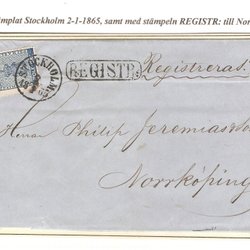 mplat Stockholm 2-1-1865, samt med stämpeln REGISTR: till No
STOCKHOLM
REGISTR:
Registreras
Herr Philip Jeremias
Norrköping